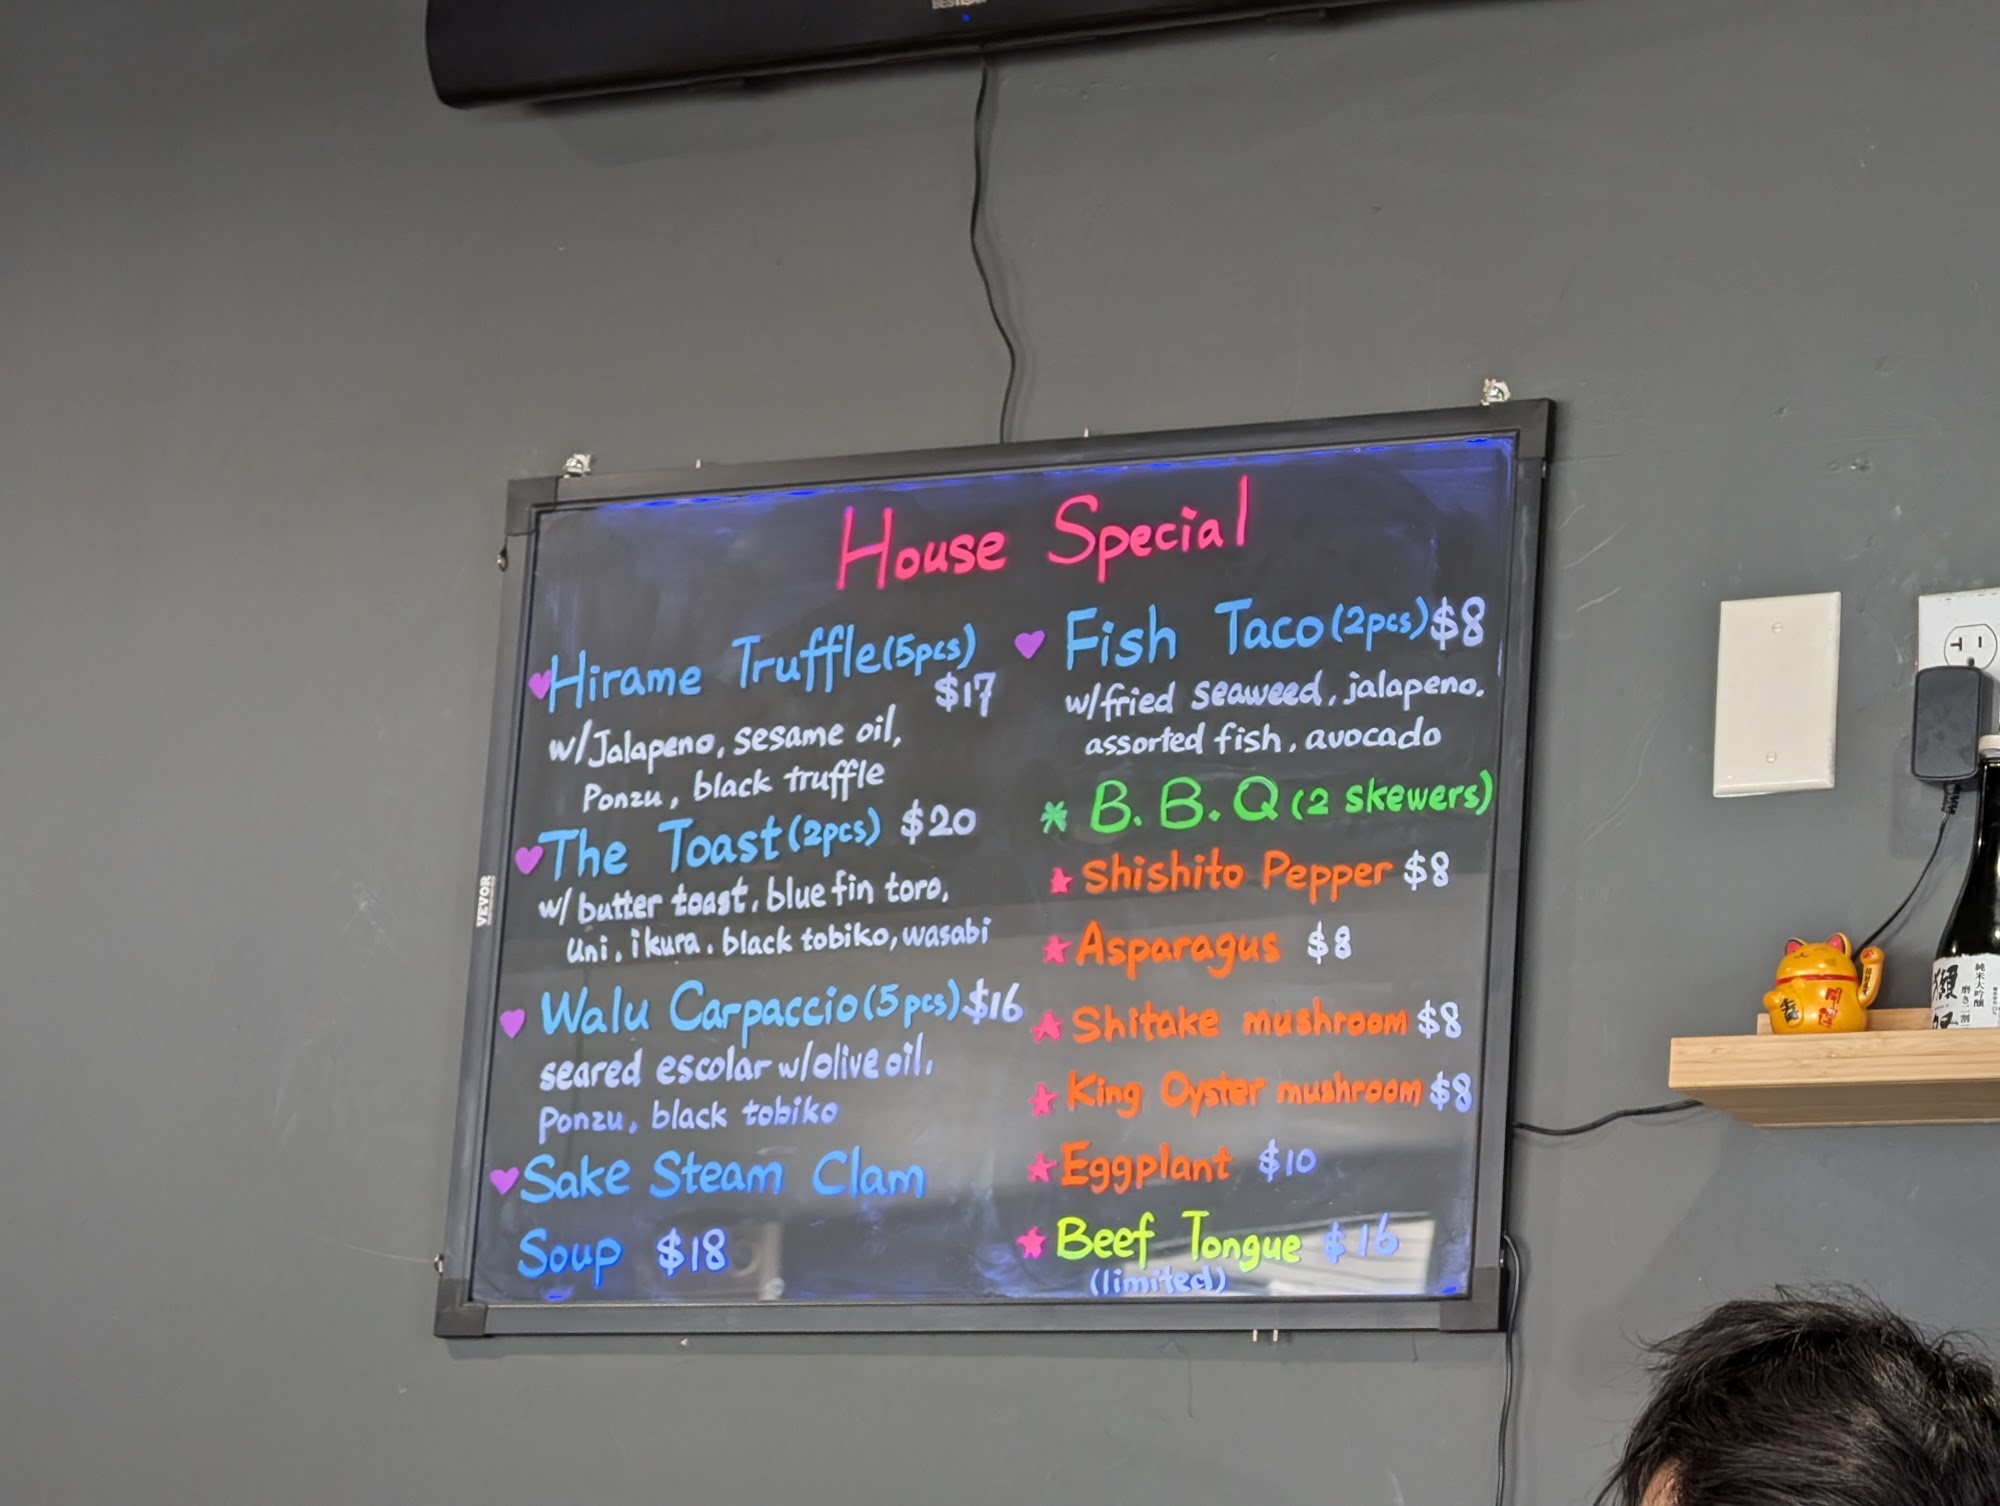 House Special
Hirame Truffle(5pcs)
$17
w/Jalapeno, sesame oil,
Ponzu, black truffle
The Toast(2pcs) $20
w/ butter toast, blue fin toro,
uni, ikura, black tobiko, wasabi
Walu Carpaccio(5pcs) $16
seared escolar w/olive oil,
Ponzu, black tobiko
Sake Steam Clam
Soup $18
Fish Taco(2pcs) $8
w/fried seaweed, jalapeno,
assorted fish, avocado
B.B.Q (2 skewers)
Shishito Pepper $8
Asparagus $8
Shitake mushroom $8
King Oyster mushroom $8
Eggplant $10
Beef Tongue $16
(limited)
VEVOR
純米大吟醸
磨き二割三